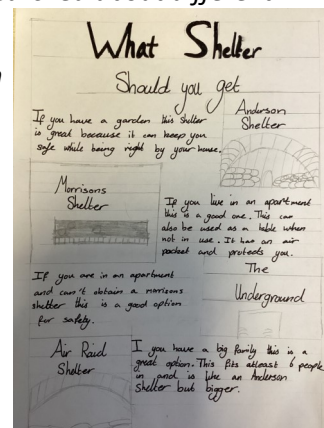 What Shelter
Should you get
If you have a garden this shelter
is great because it can keep you
safe while being right by your house.
Anderson
Shelter
Morrisons
Shelter
If you live in an apartment
this is a good one. This can
also be used as a table when
not in use. It has an air
pocket and protects you.
If you are in an apartment
and can't obtain a morrisons
shelter this is a good option
for safety.
The
Underground
Air Raid
Shelter
I you have a big family this is a
great option. This fits atleast 6 people
in and is like an Anderson
Shelter but bigger.